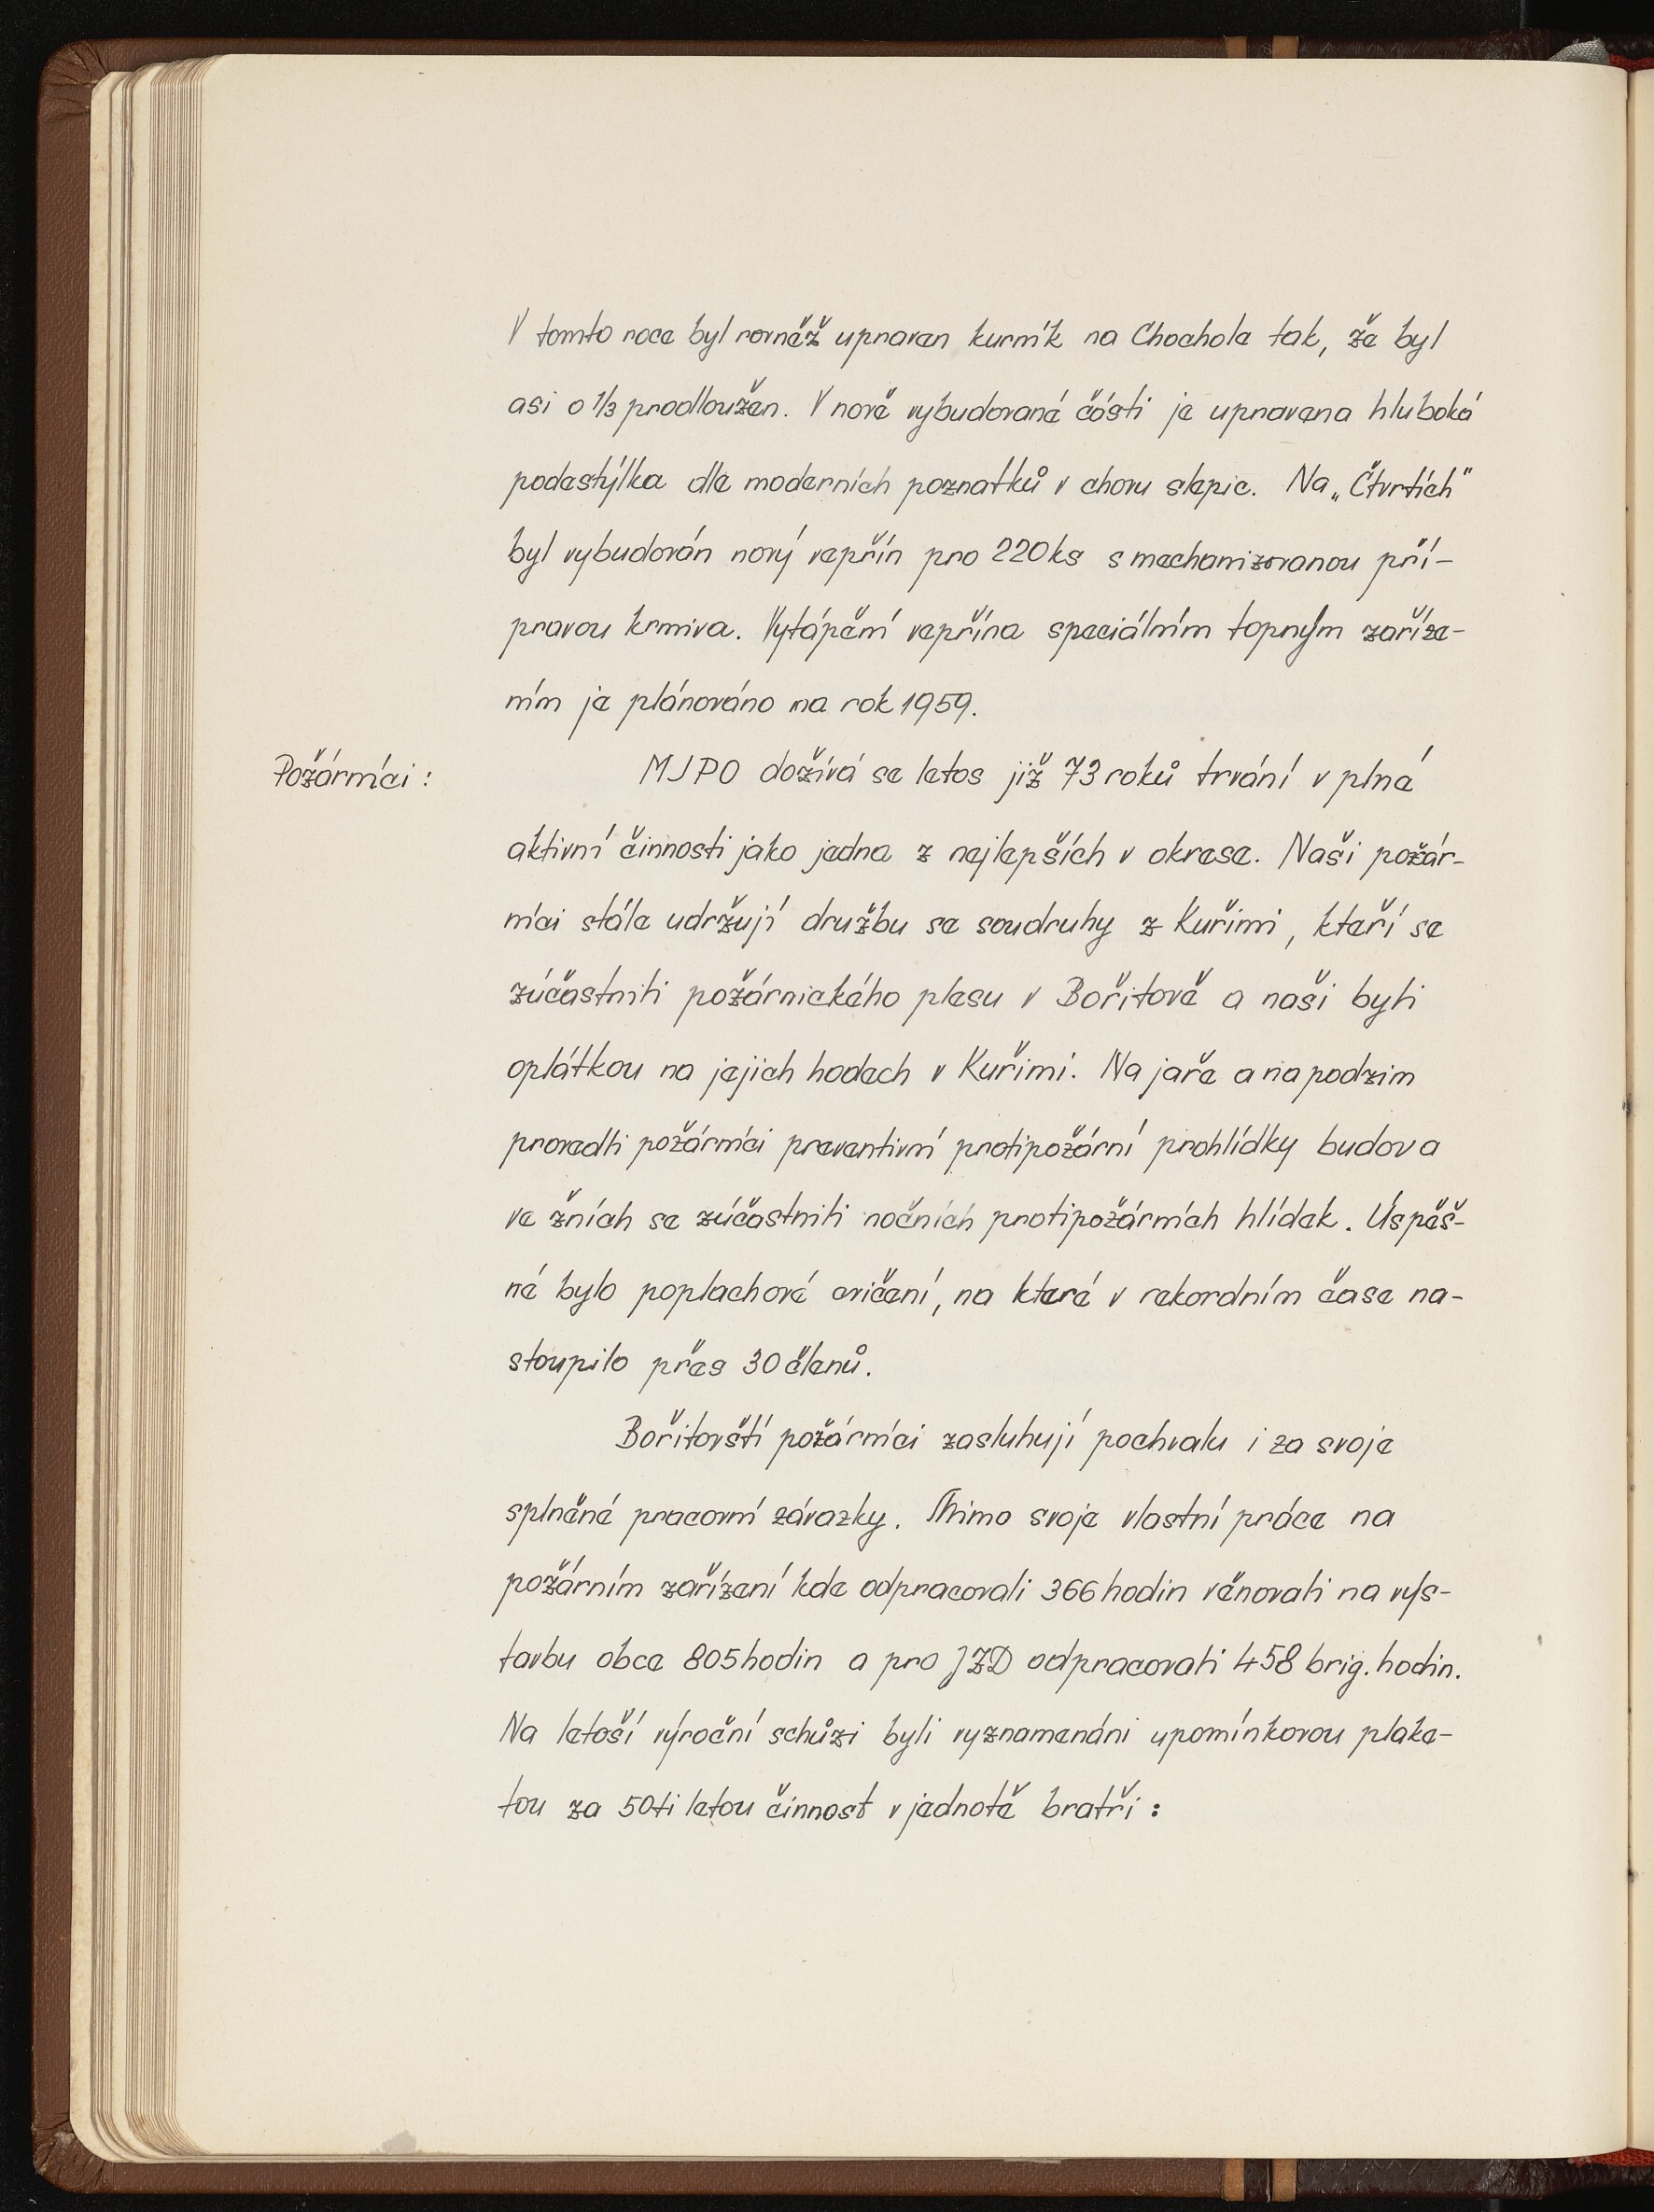 V tomto roce byl rovněž upraven kurník na Chochole tak, že byl
asi o 1/3 prodloužen. V nově vybudované části je upravena hluboká
podestýlka dle moderních poznatků v chovu slepic. Na „Čtvrtích"
byl vybudován nový vepřín pro 220 ks s mechanizovanou pří-
pravou krmiva. Vytápění vepřína speciálním topným zaříze-
ním je plánováno na rok 1959.
Požárníci :
MJPO dožívá se letos již 73 roků trvání v plné
aktivní činnosti jako jedna z nejlepších v okrese. Naši požár-
níci stále udržují družbu se soudruhy z Kuřimi, kteří se
zúčastnili požárnického plesu v Bořitově a naši byli
oplátkou na jejich hodech v Kuřimi. Na jaře a na podzim
provedli požárníci preventivní protipožární prohlídky budov a
ve žních se zúčastnili nočních protipožárních hlídek. Úspěš-
né bylo poplachové cvičení, na které v rekordním čase na-
stoupilo přes 30 členů.
Bořitovští požárníci zasluhují pochvalu i za svoje
splněné pracovní závazky. Mimo svoje vlastní práce na
požárním zařízení kde odpracovali 366 hodin věnovali na výs-
tavbu obce 805 hodin a pro JZD odpracovali 458 brig. hodin.
Na letoší výroční schůzi byli vyznamenáni upomínkovou plake-
tou za 50ti letou činnost v jednotě bratři :